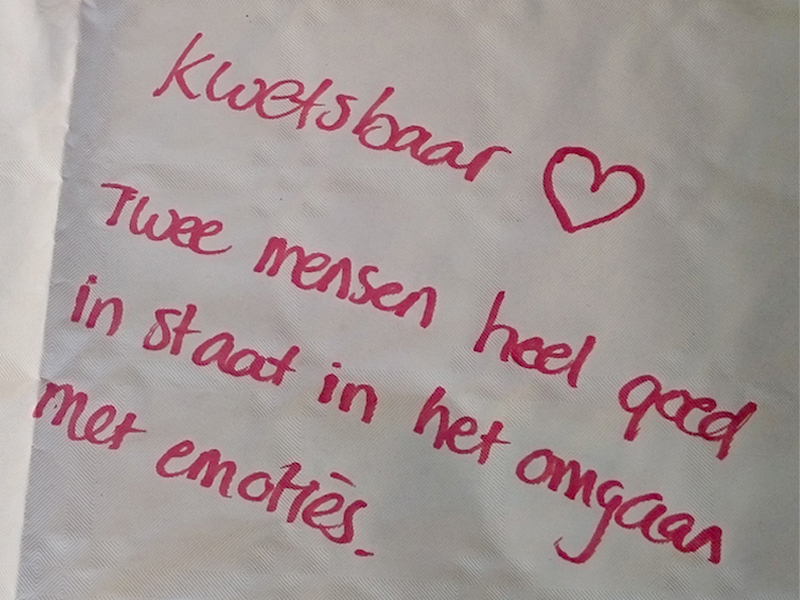 Kwetsbaar ♡
Twee mensen heel goed
in staat in het omgaan
met emoties.